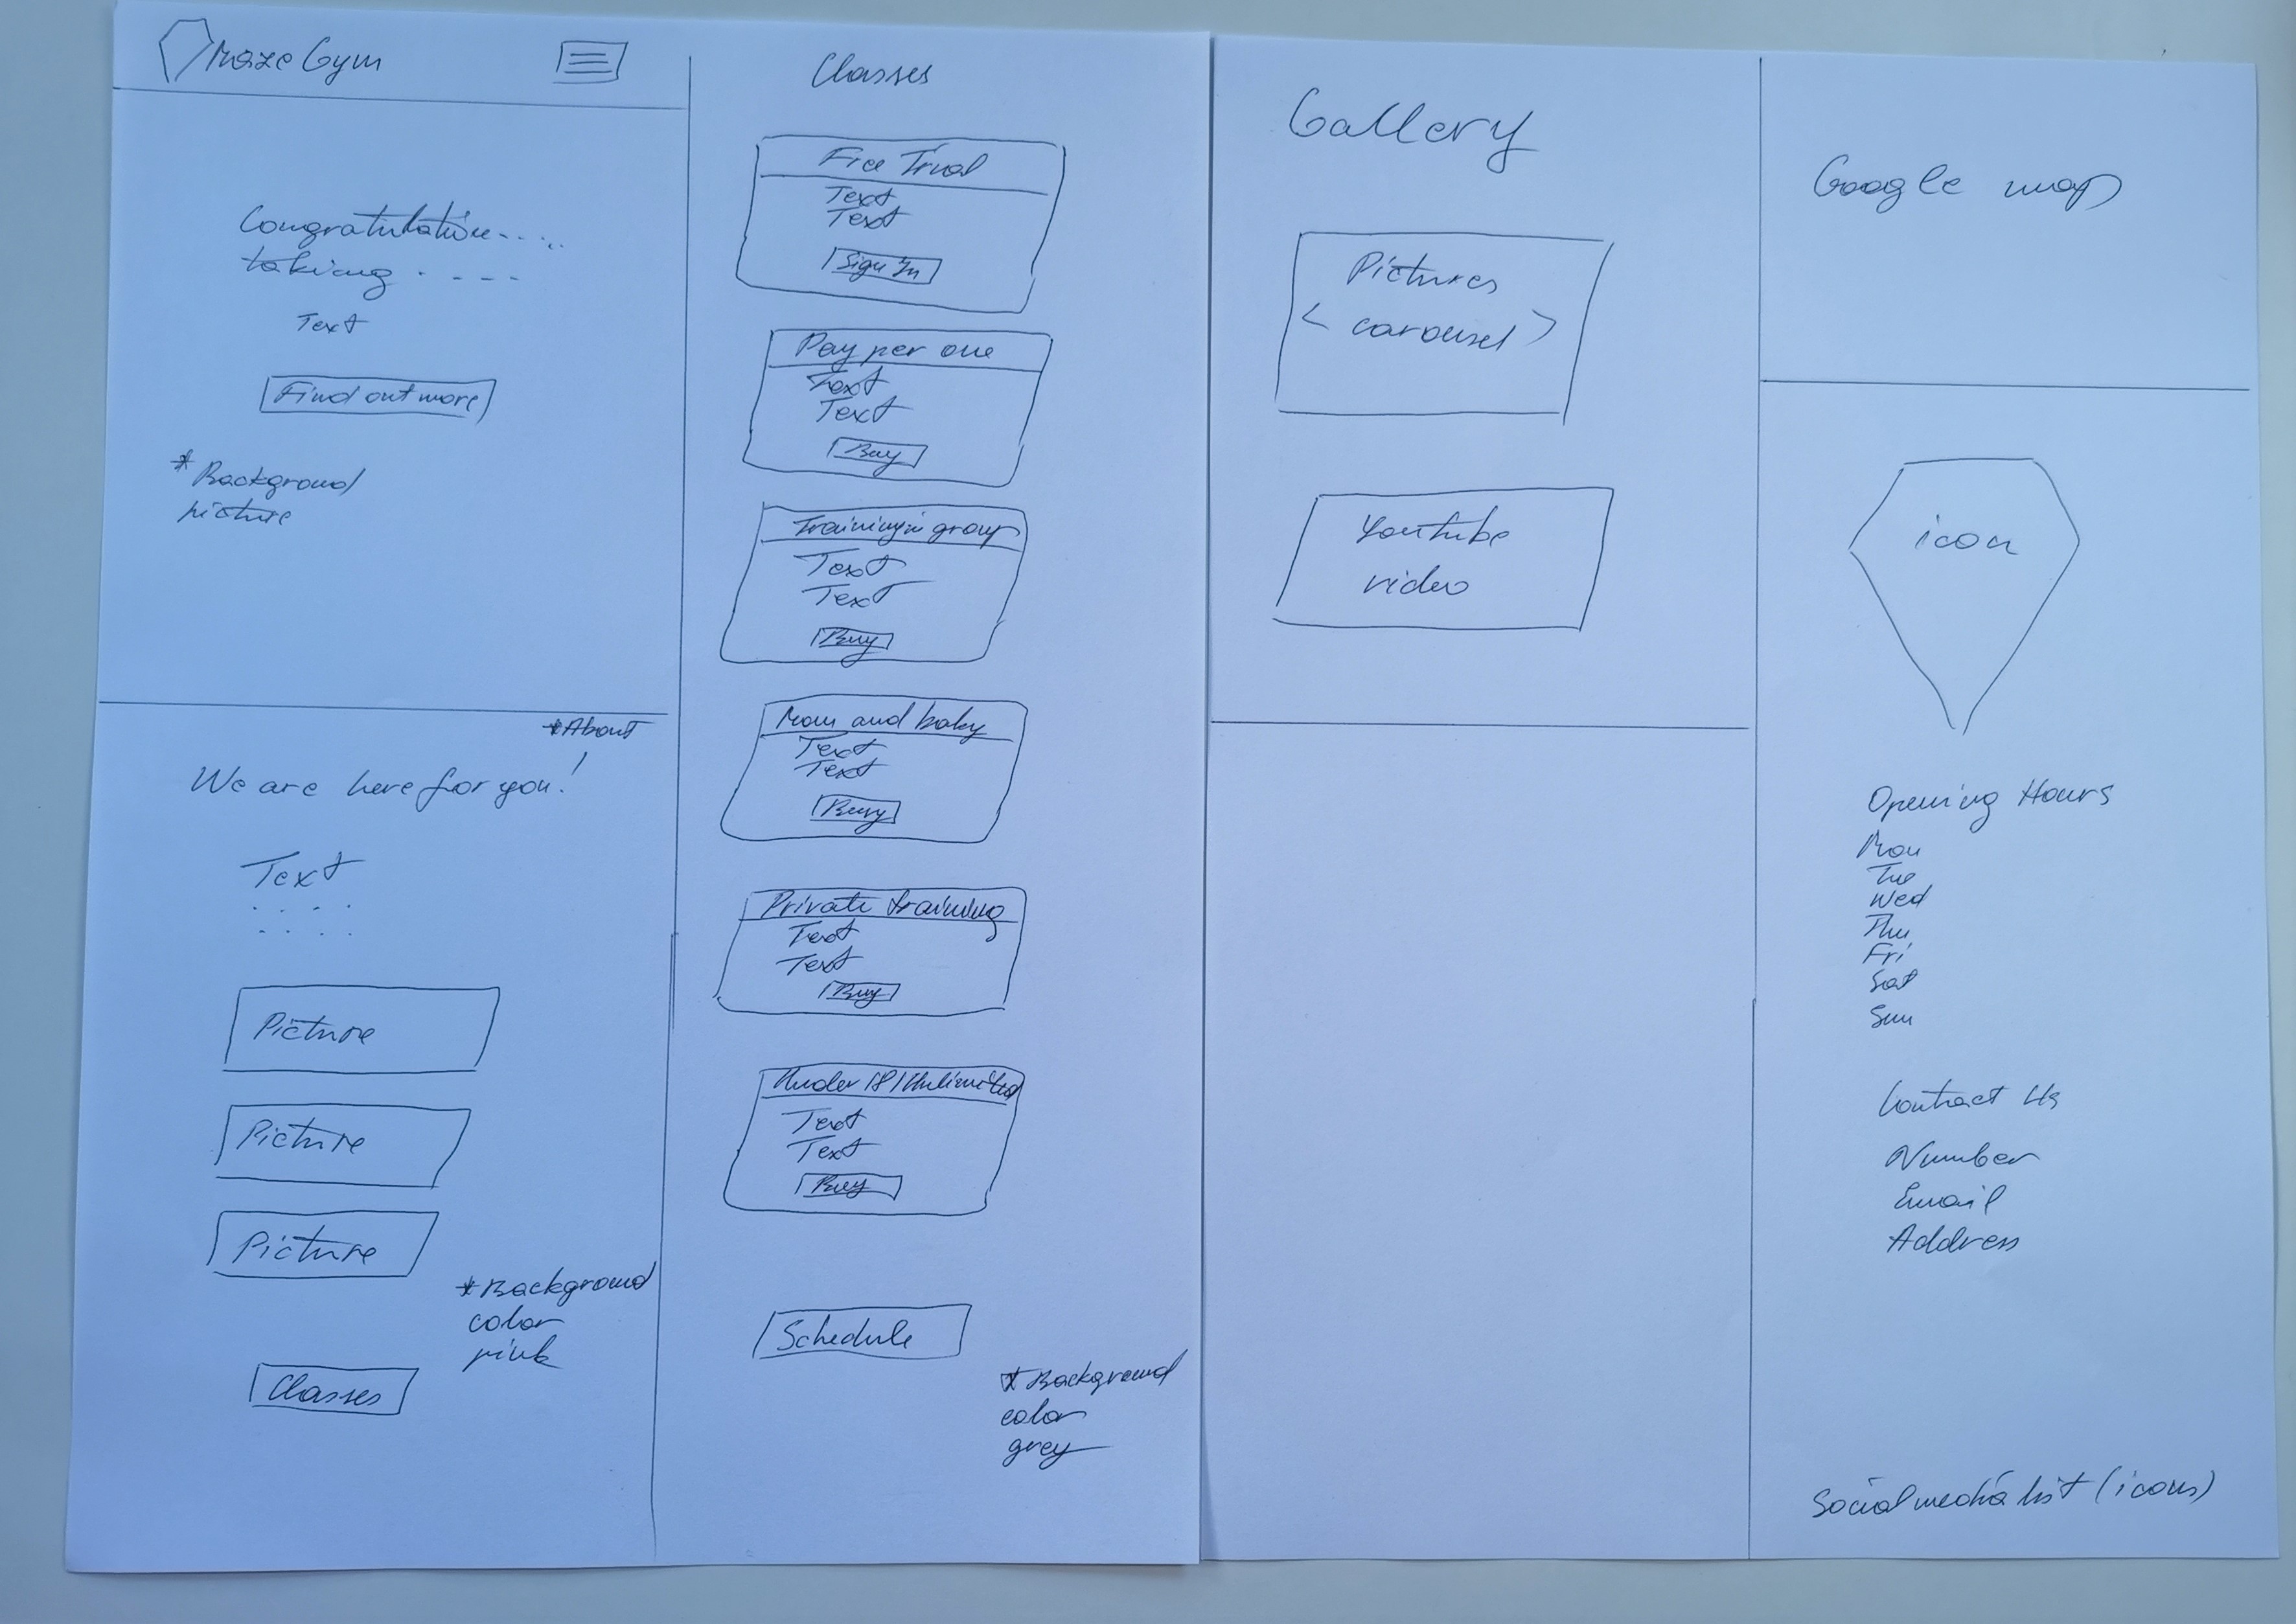 Maze Gym
Congratulation-....
taking . - - -
Text
Find out more
* Background
picture
*About
We are here for you!
Text
. . . .
. . . .
Picture
Picture
Picture
* Background
color
pink
Classes
Classes
Free Trial
Text
Text
Sign In
Pay per one
Text
Text
Buy
Training in group
Text
Text
Buy
Mom and baby
Text
Text
Buy
Private training
Text
Text
Buy
Under 18/Unlimited
Text
Text
Buy
Schedule
* Background
color
grey
Gallery
Pictures
< carousel >
Youtube
video
Google map
icon
Opening Hours
Mon
Tue
Wed
Thu
Fri
Sat
Sun
Contact Us
Number
Email
Address
Social media list (icons)